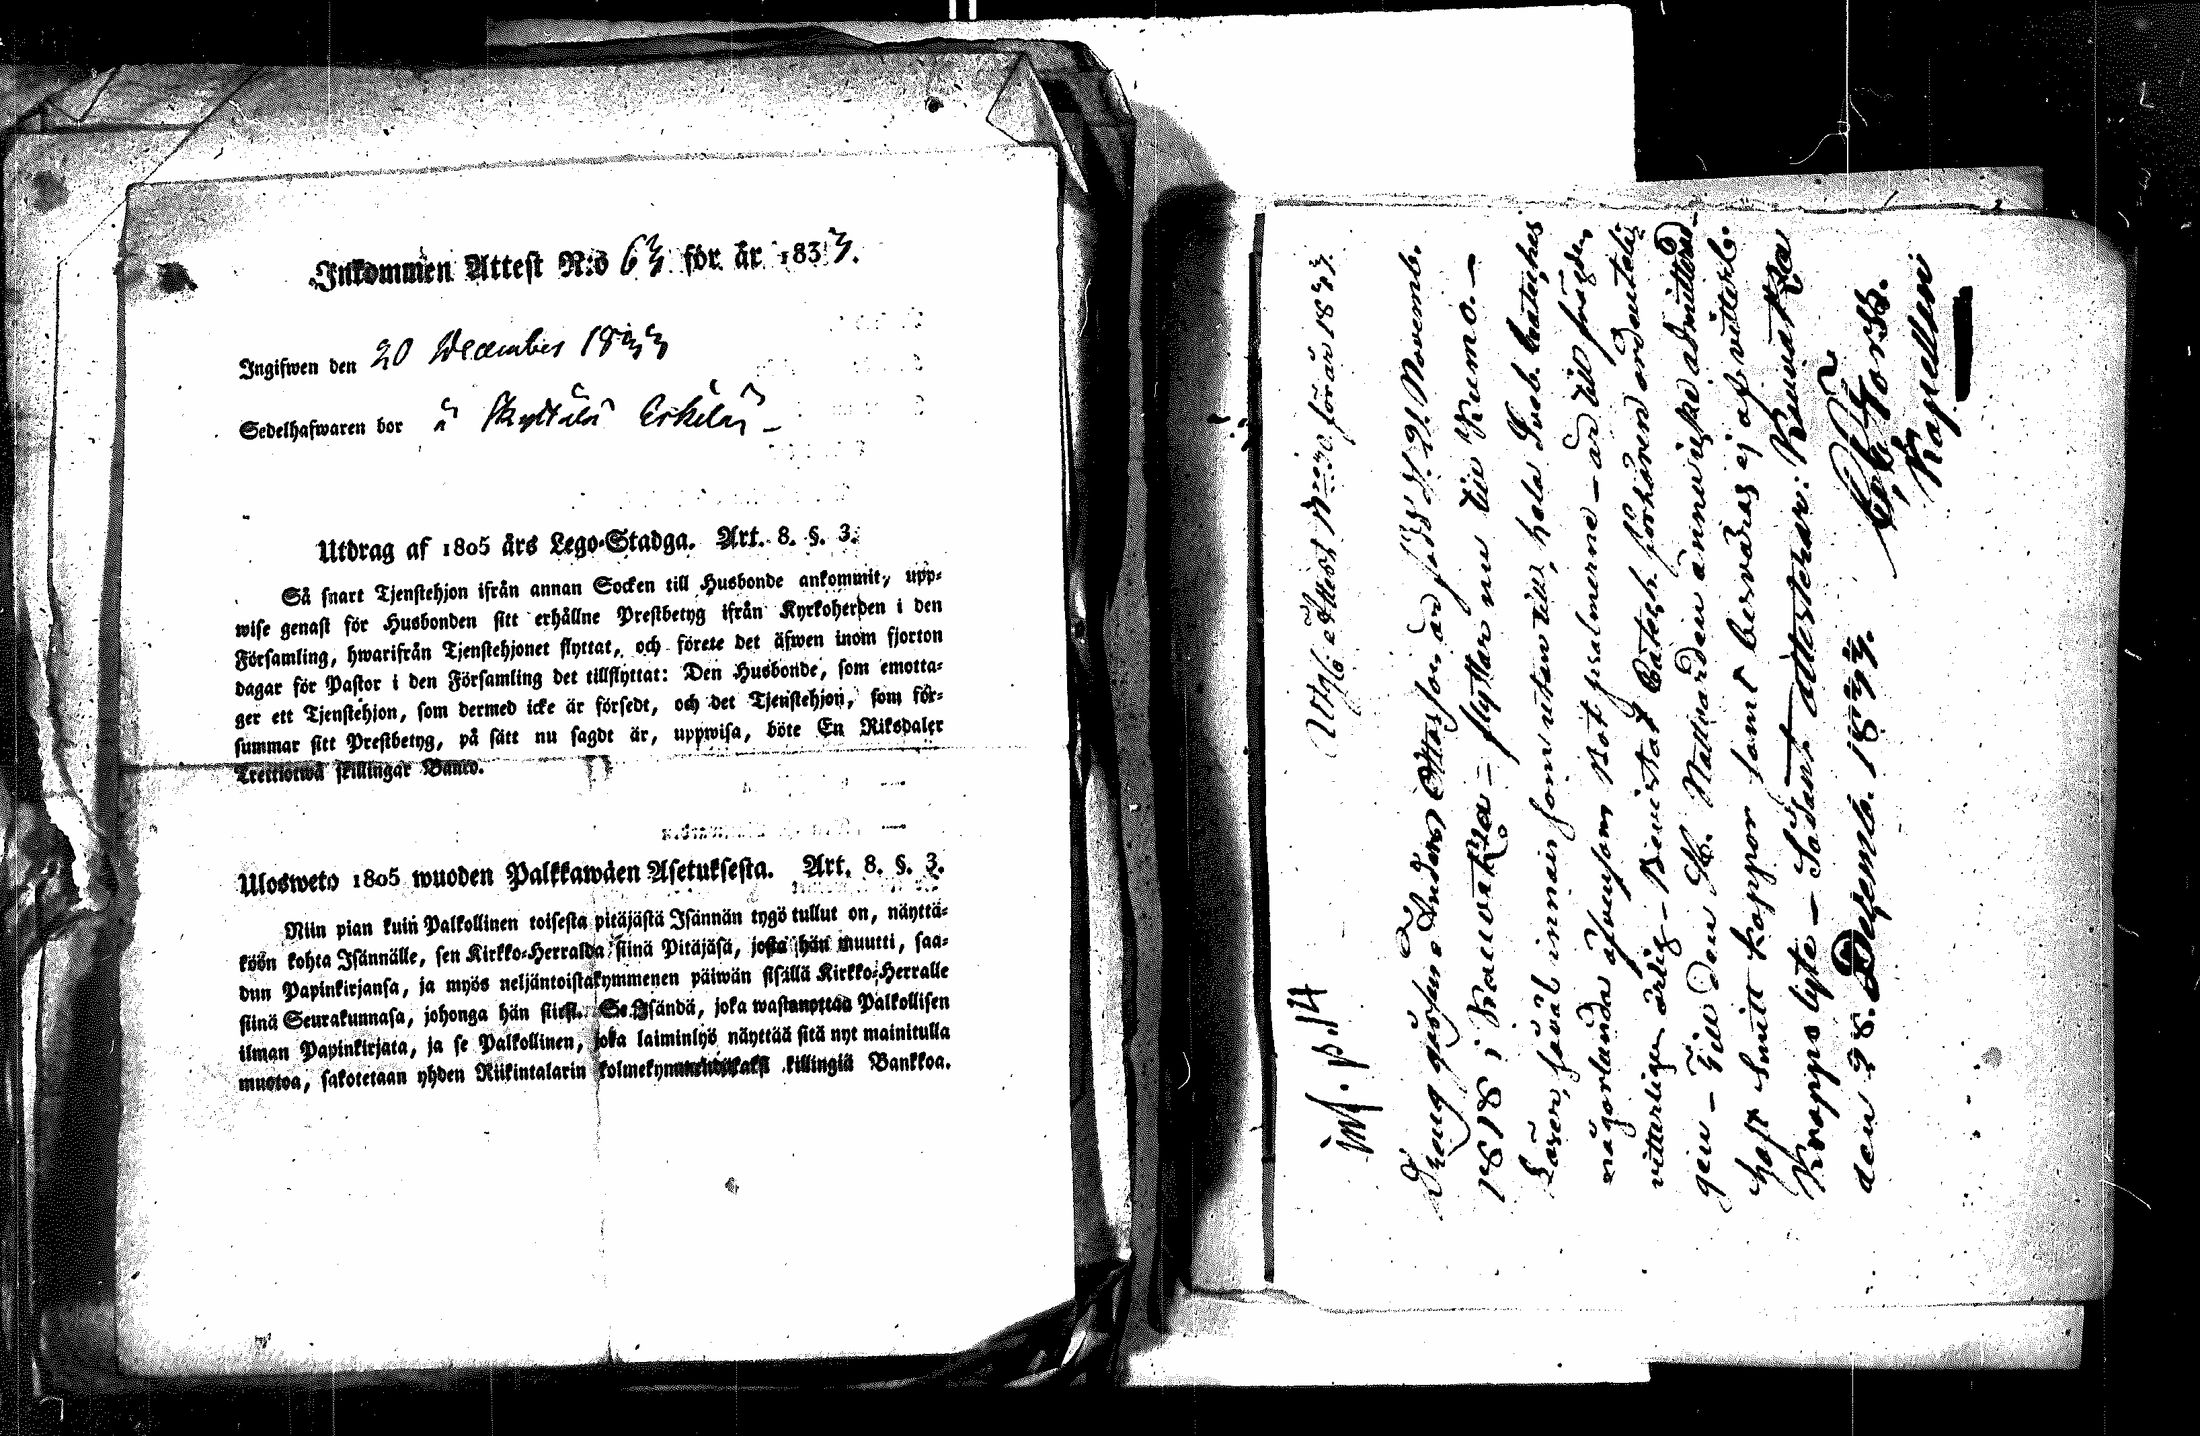 Inkommen Attest N:o 63 för år 1833.
Ingifwen den 20 December 1833
Sedelhafwaren bor å Skyttälä Erkilä
Utdrag af 1805 års Lego-Stadga. Art. 8. §. 3.
Så snart Tjenstehjon ifrån annan Socken till Husbonde ankommit, upp-
wise genast för Husbonden sitt erhållne Prestbetyg ifrån Kyrkoherden i den
Församling, hwarifrån Tjenstehjonet flyttat, och förete det äfwen inom fjorton
dagar för Pastor i den Församling det tillflyttat: Den Husbonde, som emotta-
ger ett Tjenstehjon, som dermed icke är försedt, och det Tjenstehjon, som för-
summar sitt Prestbetyg, på sätt nu sagdt är, uppwisa, böte En Riksdaler
Trettiotwå skillingar Banco.
Ulosweto 1805 wuoden Palkkawäen Asetuksesta. Art. 8. §. 3.
Niin pian kuin Palkollinen toisesta pitäjästä Isännän tygö tullut on, näyttä-
köön kohta Isännälle, sen Kirkko-Herralda siinä Pitäjäsä, josta hän muutti, saa-
dun Papinkirjansa, ja myös neljäntoistakymmenen päiwän sisällä Kirkko-Herralle
siinä Seurakunnasa, johonga hän siirsi. Se Isändä, joka wastanottaa Palkollisen
ilman Papinkirjata, ja se Palkollinen, joka laiminlyö näyttää sitä nyt mainitulla
muotoa, sakotetaan yhden Riikintalarin kolmekymmendäkaksi killingiä Bankkoa.
Attest för år 1833.
inf. p. 14
Dreng Anders Ottosson är född d. 21 Novemb.
1818 i flyttar nu till Kumo. —
Läser, såväl innan som utan till, hela Sveb. Cateches
någorlunda äfvensom Bot psalmerne — är till frägden
vitterligen ärlig — Bevistat Catech. förhören ordenteli-
gen — Till den H. Nattvarden ännu icke admitterad —
haft Smitt koppor samt besväras ej af vitterl.
Kropps lyte — Sådant attesterar:
den 28. Decemb. 1833.
Forss.
Kapellan